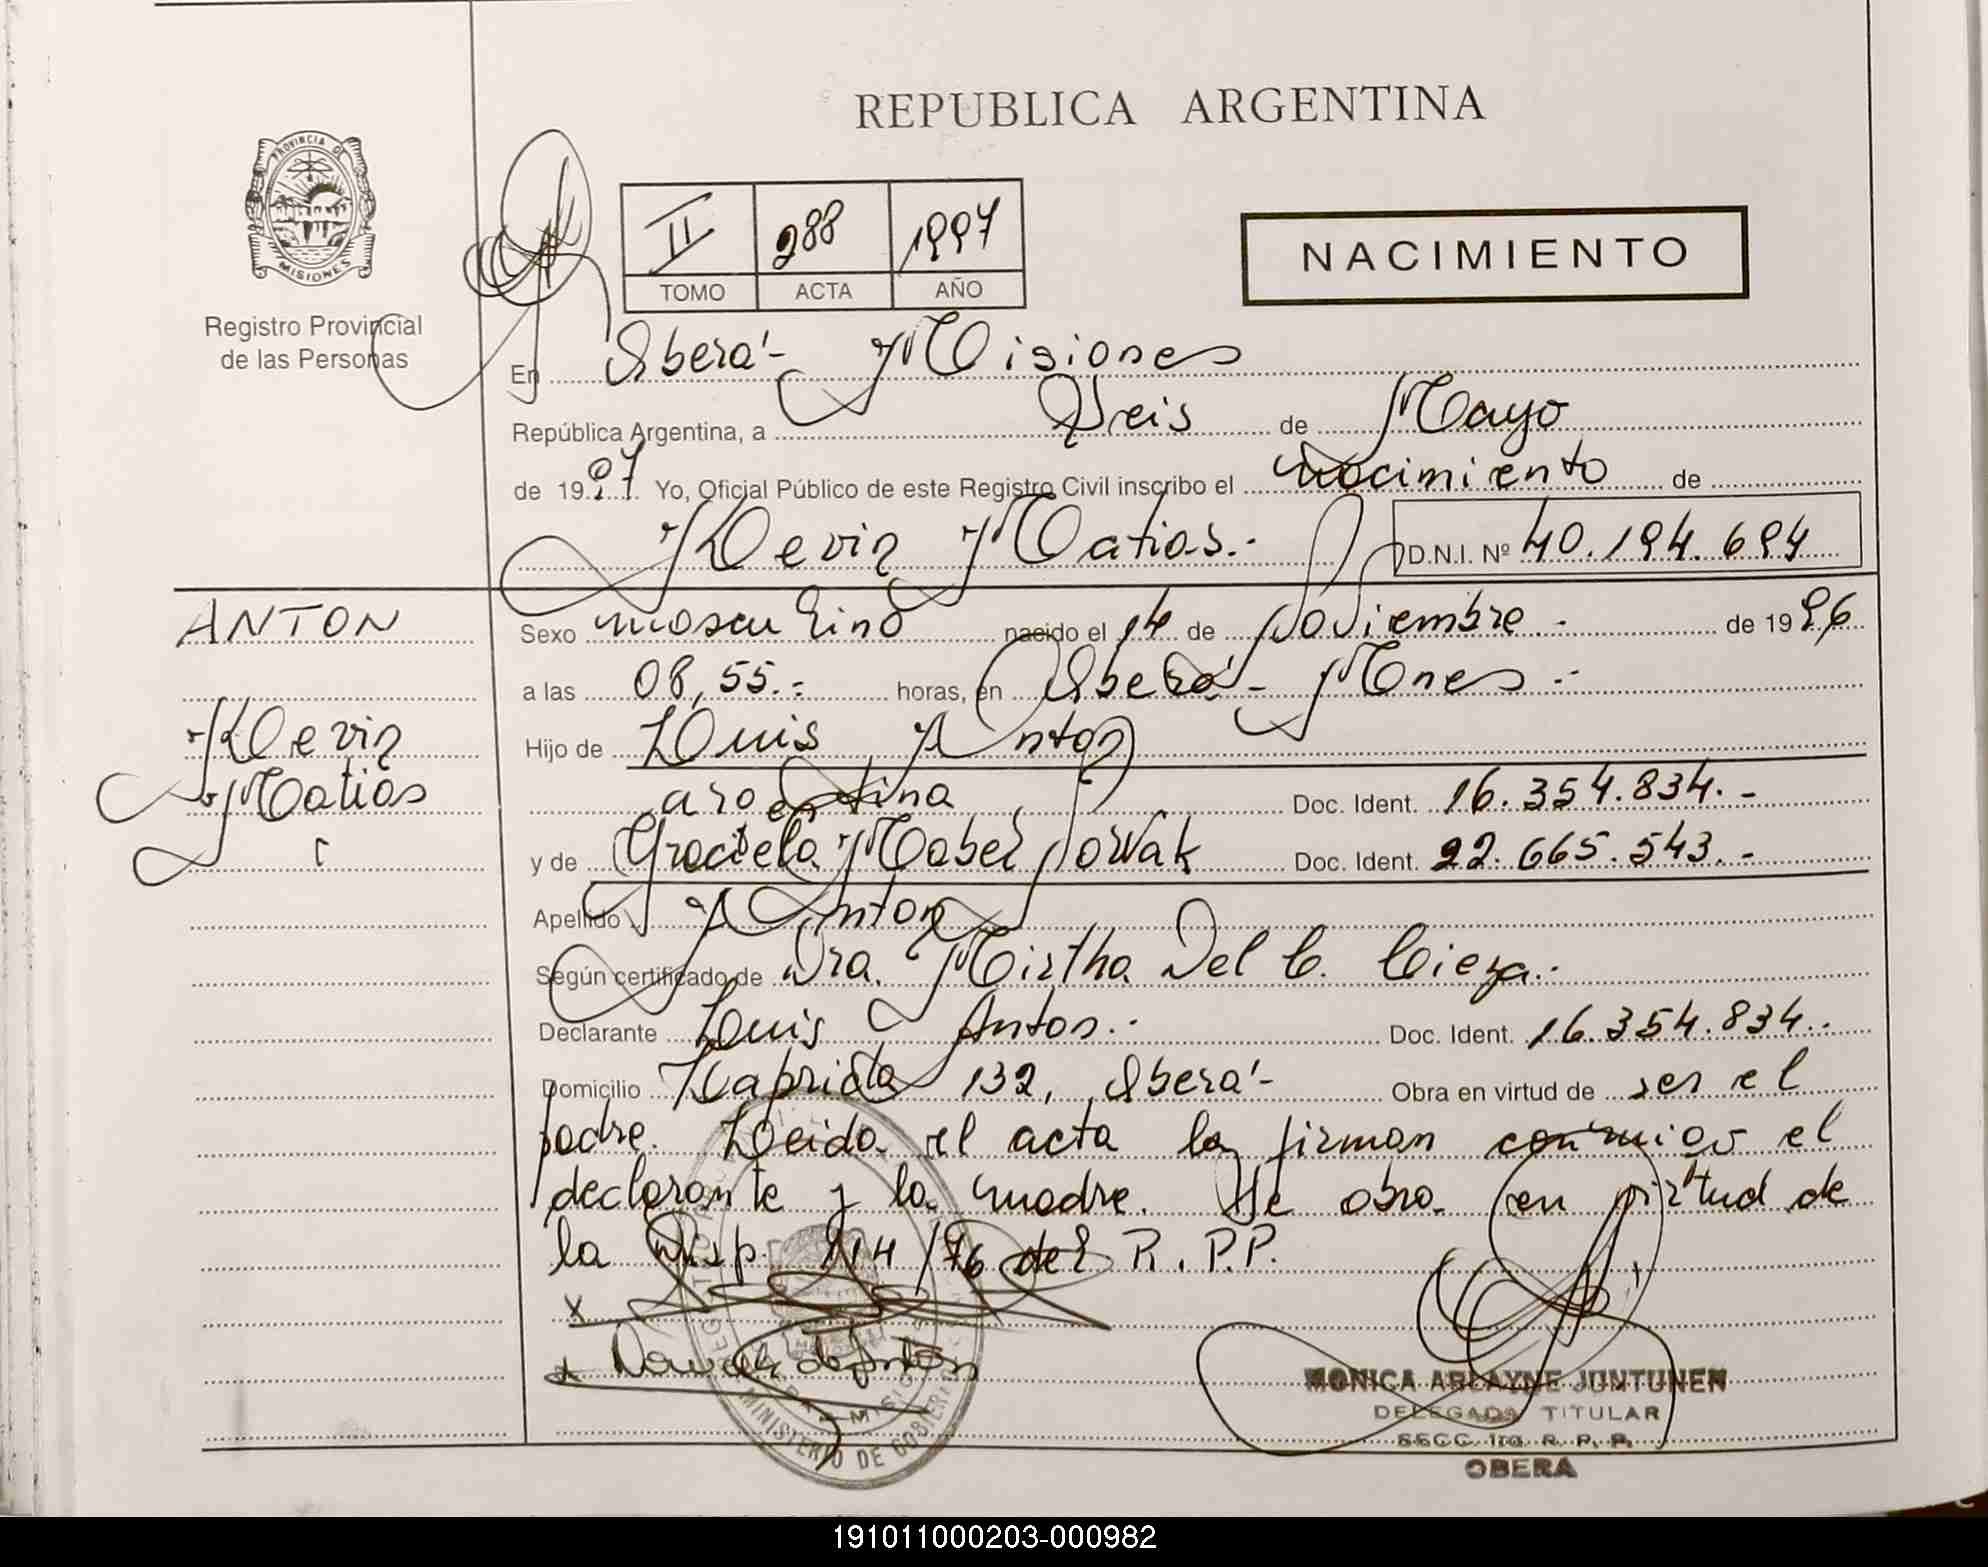 REPUBLICA ARGENTINA
PROVINCIA DE
MISIONES
Registro Provincial
de las Personas
II 288 1997
TOMO ACTA AÑO
NACIMIENTO
En Oberá - Misiones
República Argentina, a Seis de Mayo
de 1997 Yo, Oficial Público de este Registro Civil inscribo el nacimiento de
Kevin Matias.- D.N.I. Nº 40.194.694
ANTON
Kevin
Matias
Sexo masculino nacido el 14 de Noviembre - de 1996
a las 08,55.- horas, en Oberá - Mnes -
Hijo de Luis Anton
argentina Doc. Ident. 16.354.834.-
y de Graciela Mabel Nowak Doc. Ident. 22.665.543.-
Apellido Anton
Según certificado de Dra. Mirtha Del C. Cieza.-
Declarante Luis Anton.- Doc. Ident. 16.354.834.-
Domicilio Laprida 132, Oberá - Obra en virtud de ser el
padre. Leida el acta la firman conmigo el
declarante y la madre. Se obra en virtud de
la Disp. 114/76 del R.P.P.
x
x Nowak de Anton
MINISTERIO DE GOBIERNO
MONICA ARLAYNE JUNTUNEN
DELEGADA TITULAR
SSCC 1ra. R. P. P.
OBERA
191011000203-000982